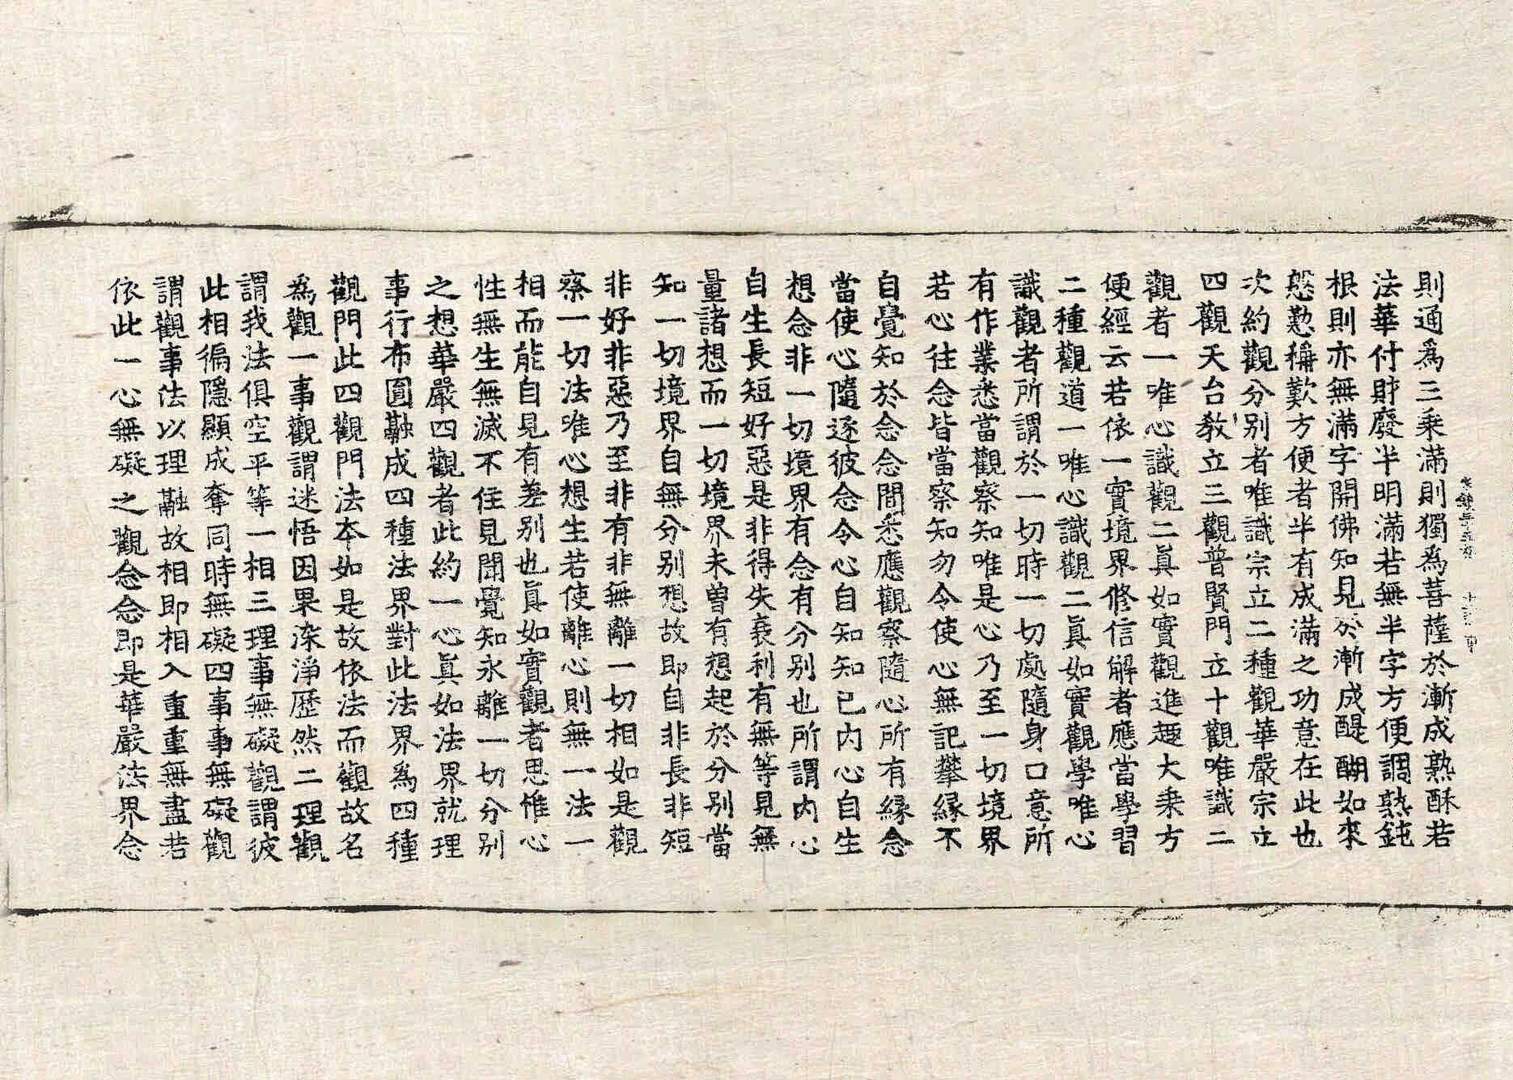 則通爲三乘滿則獨爲菩薩於漸成熟酥若
法華付財廢半明滿若無半字方便調熟鈍
根則亦無滿字開佛知見於漸成醍醐如來
慇懃稱歎方便者半有成滿之功意在此也
次約觀分別者唯識宗立二種觀華嚴宗立
四觀天台教立三觀普賢門立十觀唯識二
觀者一唯心識觀二眞如實觀進趣大乘方
便經云若依一實境界修信解者應當學習
二種觀道一唯心識觀二眞如實觀學唯心
識觀者所謂於一切時一切處隨身口意所
有作業悉當觀察知唯是心乃至一切境界
若心住念皆當察知勿令使心無記攀緣不
自覺知於念念間悉應觀察隨心所有緣念
當使心隨逐彼念令心自知知已內心自生
想念非一切境界有念有分別也所謂內心
自生長短好惡是非得失衰利有無等見無
量諸想而一切境界未曾有想起於分別當
知一切境界自無分別想故即自非長非短
非好非惡乃至非有非無離一切相如是觀
察一切法唯心想生若使離心則無一法一
相而能自見有差別也眞如實觀者思惟心
性無生無滅不住見聞覺知永離一切分別
之想華嚴四觀者此約一心眞如法界就理
事行布圓融成四種法界對此法界為四種
觀門此四觀門法本如是故依法而觀故名
為觀一事觀謂迷悟因果染淨歷然二理觀
謂我法俱空平等一相三理事無礙觀謂彼
此相徧隱顯成奪同時無礙四事事無礙觀
謂觀事法以理融故相即相入重重無盡若
依此一心無礙之觀念念即是華嚴法界念